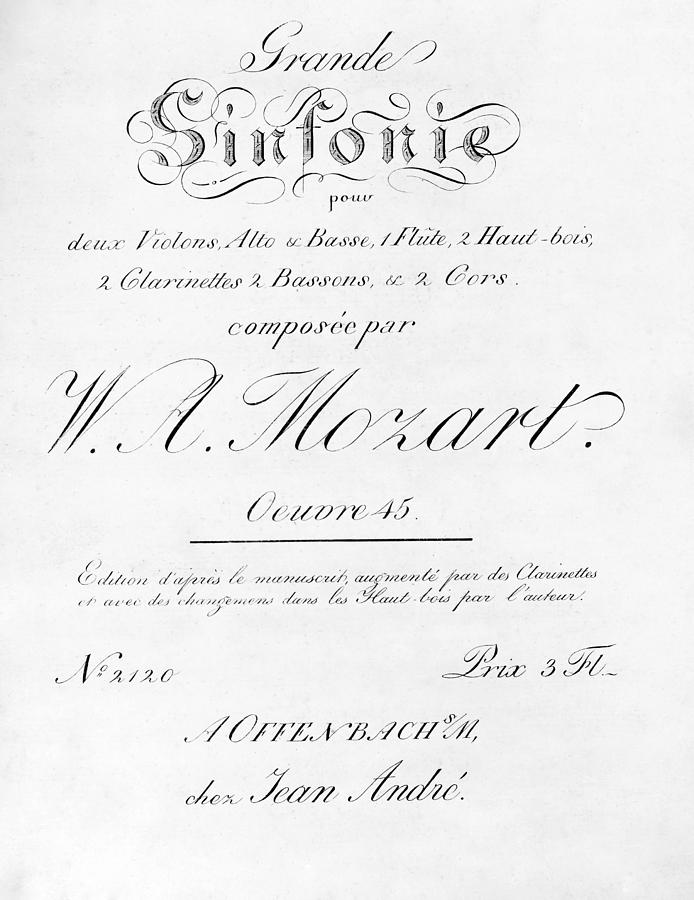 Grande
Sinfonie
pour
deux Violons, Alto & Basse, 1 Flûte, 2 Haut-bois,
2 Clarinettes 2 Bassons, & 2 Cors.
composée par
W. A. Mozart.
Oeuvre 45.
Edition d'après le manuscrit, augmenté par des Clarinettes
et avec des changemens dans les Haut-bois par l'auteur.
No. 2120
Prix 3 Fl.
A OFFENBACH s/M,
chez Jean André.